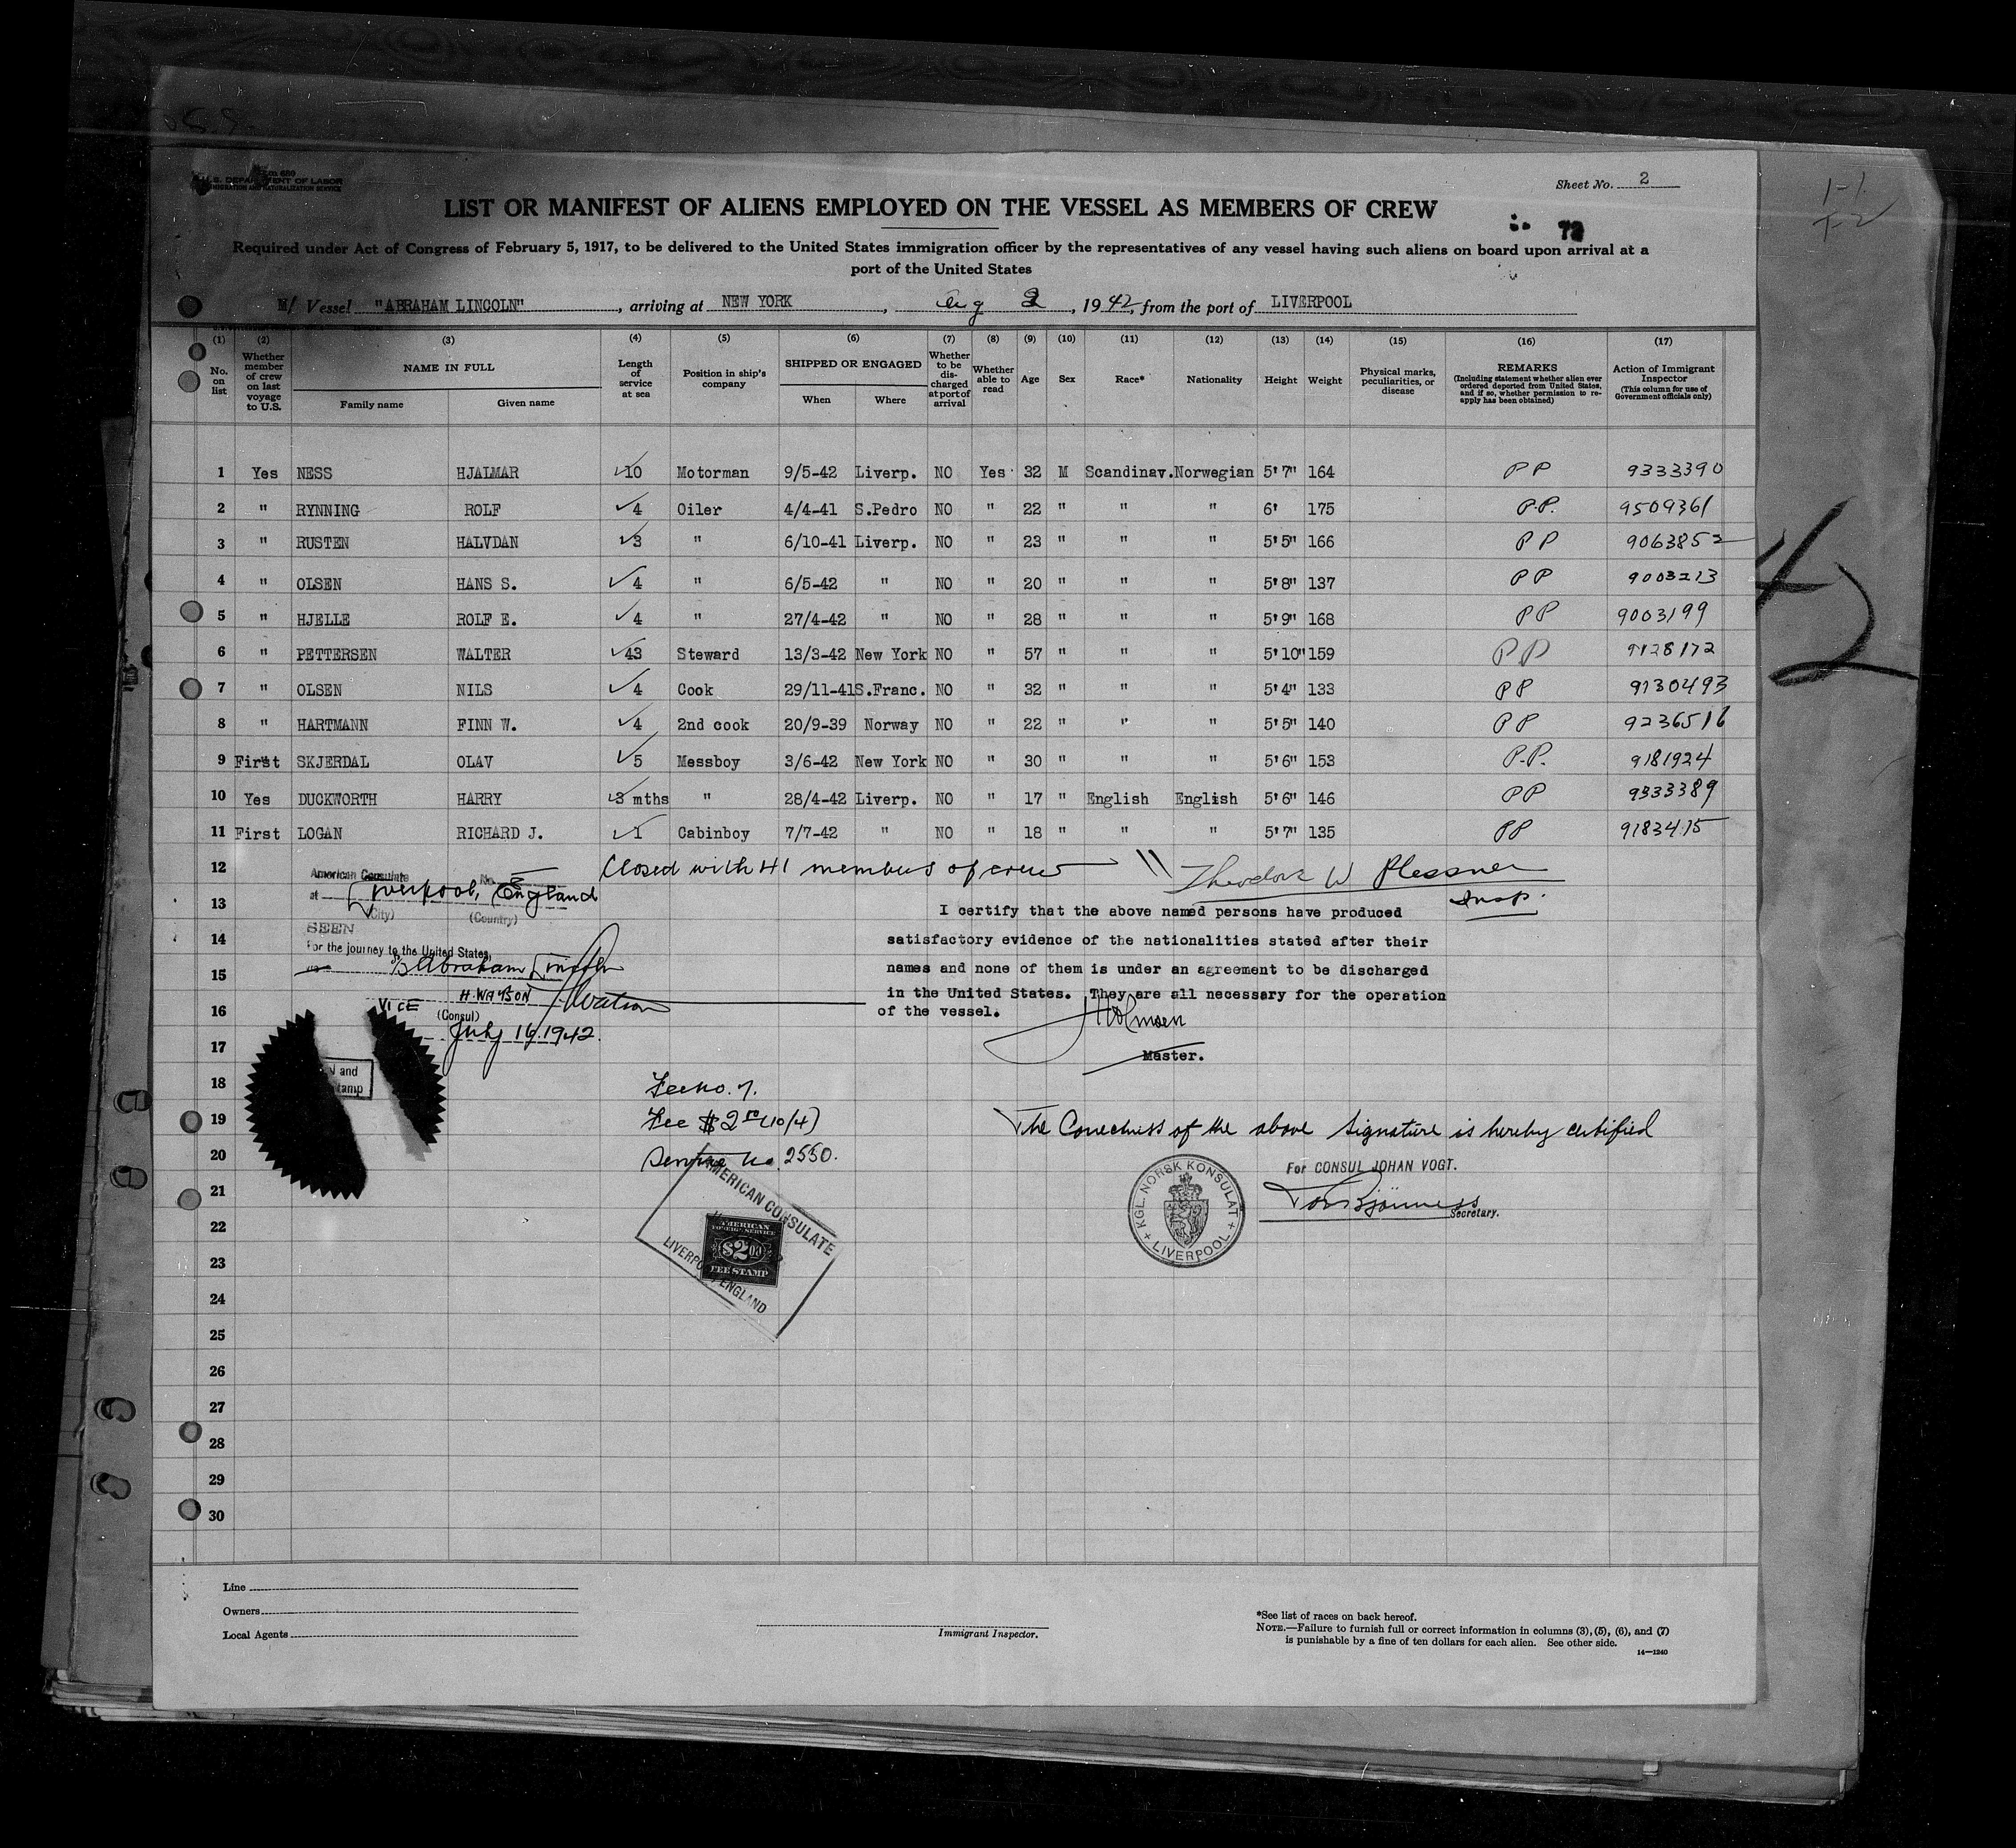 Sheet No. 2
U.S. DEPARTMENT OF LABOR
IMMIGRATION AND NATURALIZATION SERVICE
LIST OR MANIFEST OF ALIENS EMPLOYED ON THE VESSEL AS MEMBERS OF CREW
72
Required under Act of Congress of February 5, 1917, to be delivered to the United States immigration officer by the representatives of any vessel having such aliens on board upon arrival at a
port of the United States
M/ Vessel "ABRAHAM LINCOLN", arriving at NEW YORK, Aug 2, 1942, from the port of LIVERPOOL
(1) (2) (3) (4) (5) (6) (7) (8) (9) (10) (11) (12) (13) (14) (15) (16) (17)
No. on list
Whether member of crew on last voyage to U.S.
NAME IN FULL
Family name
Given name
Length of service at sea
Position in ship's company
SHIPPED OR ENGAGED
When
Where
Whether to be discharged at port of arrival
Whether able to read
Age
Sex
Race*
Nationality
Height
Weight
Physical marks, peculiarities, or disease
REMARKS
(Including statement whether alien ever ordered deported from United States, and if so, whether permission to re-apply has been obtained)
Action of Immigrant Inspector
(This column for use of Government officials only)
1 Yes NESS HJALMAR 10 Motorman 9/5-42 Liverp. NO Yes 32 M Scandinav. Norwegian 5'7" 164 PP 9333390
2 " RYNNING ROLF 4 Oiler 4/4-41 S.Pedro NO " 22 " " " 6' 175 P.P. 9509361
3 " RUSTEN HALVDAN 3 " 6/10-41 Liverp. NO " 23 " " " 5'5" 166 PP 9063852
4 " OLSEN HANS S. 4 " 6/5-42 " NO " 20 " " " 5'8" 137 PP 9003213
5 " HJELLE ROLF E. 4 " 27/4-42 " NO " 28 " " " 5'9" 168 PP 9003199
6 " PETTERSEN WALTER 43 Steward 13/3-42 New York NO " 57 " " " 5'10" 159 PP 9128172
7 " OLSEN NILS 4 Cook 29/11-41 S.Franc. NO " 32 " " " 5'4" 133 PP 9130493
8 " HARTMANN FINN W. 4 2nd cook 20/9-39 Norway NO " 22 " " " 5'5" 140 PP 9236516
9 First SKJERDAL OLAV 5 Messboy 3/6-42 New York NO " 30 " " " 5'6" 153 P.P. 9181924
10 Yes DUCKWORTH HARRY 3 mths " 28/4-42 Liverp. NO " 17 " English English 5'6" 146 PP 9333389
11 First LOGAN RICHARD J. 1 Cabinboy 7/7-42 " NO " 18 " " " 5'7" 135 PP 9183415
42
12 Closed with 41 members of crew Theodore W Plessner
Insp.
American Consulate No.
at Liverpool, England
(City) (Country)
13
I certify that the above named persons have produced
14
SEEN
satisfactory evidence of the nationalities stated after their
For the journey to the United States,
15
Abraham Lincoln
names and none of them is under an agreement to be discharged
H. WATSON HWatson
in the United States. They are all necessary for the operation
16
VICE (Consul)
of the vessel.
July 16, 1942.
17
Master.
and
18
Fee No. 7.
19
Fee $2 (10/4)
The Correctness of the above Signature is hereby certified
20
Service No. 2550.
For CONSUL JOHAN VOGT.
21
Secretary.
KGL. NORSK KONSULAT
LIVERPOOL
22
AMERICAN CONSULATE
LIVERPOOL ENGLAND
AMERICAN
FOREIGN SERVICE
$2.00
FEE STAMP
23
24
25
26
27
28
29
30
Line
Owners
Local Agents
Immigrant Inspector.
*See list of races on back hereof.
NOTE.—Failure to furnish full or correct information in columns (3), (5), (6), and (7)
is punishable by a fine of ten dollars for each alien. See other side.
14—1240